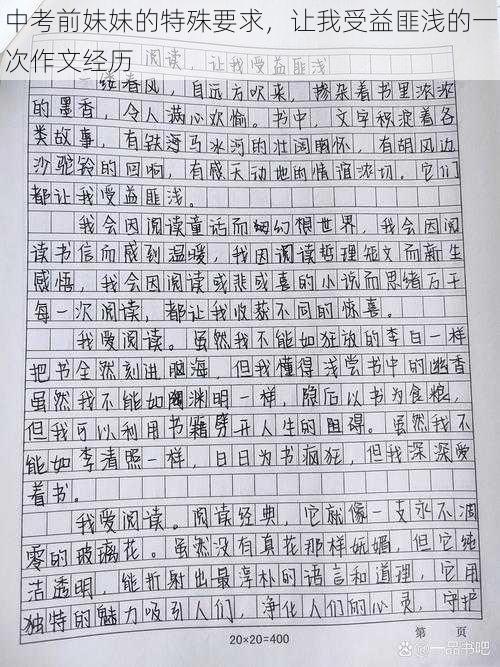 中考前妹妹的特殊要求，让我受益匪浅的一
次作文经历
阅读，让我受益匪浅
一缕春风，自远方吹来，掺杂着书里浓浓
的墨香，令人满心欢愉。书中，文字积淀着各
类故事，有铁马冰河的壮阔胸怀，有胡风边
沙驼铃的回响，有感天动地的情谊浓切。它们
都让我受益匪浅。
我会因阅读童话而幻想世界，我会因阅
读书信而感到温暖，我因阅读哲理短文而新生
感悟，我会因阅读或悲或喜的小说而思绪万千
每一次阅读，都让我收获不同的惊喜。
我爱阅读。虽然我不能如狂放的李白一样
把书全然刻进脑海，但我懂得浅尝书中的幽香
虽然我不能如陶渊明一样，隐居以书为食粮，
但我可以利用书籍劈开人生的阻碍。虽然我不
能如李清照一样，日日为书疯狂，但我深深爱
着书。
我爱阅读。阅读经典，它就像一支永不凋
零的玻璃花。虽然没有真花那样妩媚，但它纯
洁透明，能折射出最淳朴的语言和道理，它用
独特的魅力吸引人们，净化人们的心灵，守护
20×20=400
第 页
一品书吧